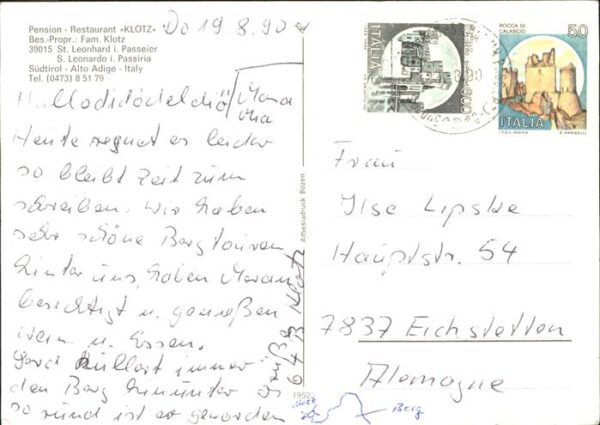 Pension - Restaurant «KLOTZ»
Bes.-Propr.: Fam. Klotz
39015 St. Leonhard i. Passeier
S. Leonardo i. Passiria
Südtirol - Alto Adige - Italy
Tel. (0473) 8 51 79
Do 19.8.90
Heute regnet es leider
so bleibt Zeit zum
schreiben. Wir haben
sehr schöne Bergtouren
hinter uns, haben Meran
besichtigt u. genießen
Wein u. Essen.
Gerd kullert immer
den Berg hinunter
so rund ist er geworden
Grüße
Klotz
Athesiadruck Bozen
1952
Berg
ITALIA
ROCCA DI CALASCIO
50
ITALIA
Frau
Ilse Lipske
Hauptstr. 54
7837 Eichstetten
Alemagne